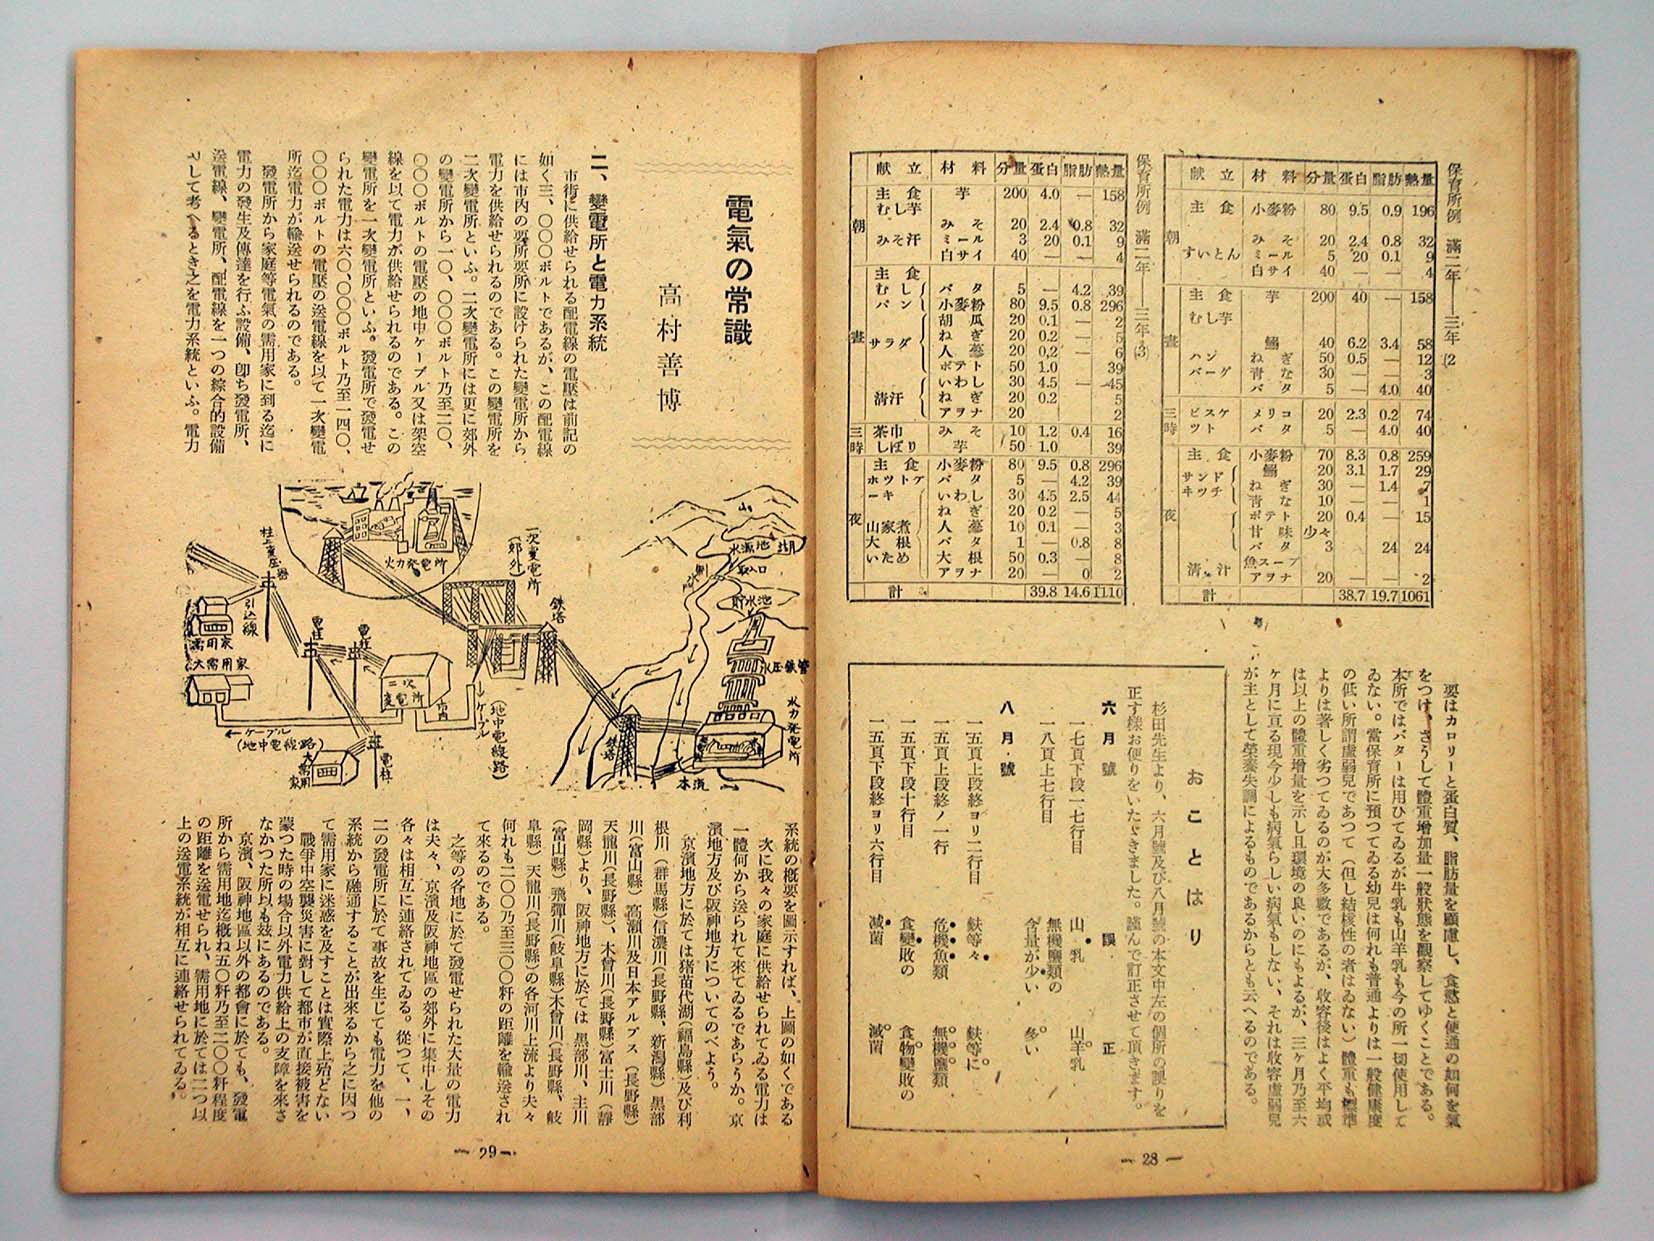 保育所例 滿二年——三年(2
献立 材料 分量 蛋白 脂肪 熱量
朝
主食 小麥粉 80 9.5 0.9 196
すいとん みそ 20 2.4 0.8 32
ミール 5 20 0.1 9
白サイ 40 — — 4
晝
主食 芋 200 40 — 158
むし芋
ハンバーグ 鰯 40 6.2 3.4 58
ねぎ 50 0.5 — 12
青な 30 — — 3
バタ 5 — 4.0 40
三時
ビスケツト メリコ 20 2.3 0.2 74
バタ 5 — 4.0 40
夜
主食 小麥粉 70 8.3 0.8 259
サンドヰツチ 鰯 20 3.1 1.7 29
ねぎ 30 — 1.4 7
青な 10 — — 1
ポテト 20 0.4 — 15
甘味 少々
バタ 3 24 24
清汁 魚スープ
アヲナ 20 — — 2
計 38.7 19.7 1061
保育所例 滿二年——三年(3)
献立 材料 分量 蛋白 脂肪 熱量
朝
主食 芋 200 4.0 — 158
むし芋
みそ汁 みそ 20 2.4 0.8 32
ミール 3 20 0.1 9
白サイ 40 — — 4
晝
主食
むしパン バタ 5 — 4.2 39
小麥粉 80 9.5 0.8 296
サラダ 胡瓜 20 0.1 — 2
ねぎ 20 0.2 — 5
人蔘 20 0.2 — 6
ポテト 50 1.0 39
清汁 いわし 30 4.5 — 45
ねぎ 20 0.2 5
アヲナ 20 2
三時
茶巾しぼり みそ 10 1.2 0.4 16
芋 50 1.0 39
夜
主食 小麥粉 80 9.5 0.8 296
ホツトケーキ バタ 5 — 4.2 39
いわし 30 4.5 2.5 44
ねぎ 20 0.2 — 5
山家煮 人蔘 10 0.1 — 3
大根いため バタ 1 — 0.8 8
大根 50 0.3 — 8
アヲナ 20 — 0 2
計 39.8 14.6 1110
要はカロリーと蛋白質、脂肪量を顧慮し、食慾と便通の如何を氣
をつけ、さうして體重增加量一般狀態を觀察してゆくことである。
本所ではバターは用ひてゐるが牛乳も山羊乳も今の所一切使用して
ゐない。當保育所に預つてゐる幼兒は何れも普通よりは一般健康度
の低い所謂虛弱兒であつて(但し結核性の者はゐない)體重も標準
よりは著しく劣つてゐるのが大多數であるが、收容後はよく平均或
は以上の體重增量を示し且環境の良いのにもよるが、三ヶ月乃至六
ヶ月に亘る現今少しも病氣らしい病氣もしない、それは收容虛弱兒
が主として榮養失調によるものであるからとも云へるのである。
おことはり
杉田先生より、六月號及び八月號の本文中左の個所の誤りを
正す樣お便りをいたゞきました。謹んで訂正させて頂きます。
六月號 誤 正
一七頁下段一七行目 山乳 山羊乳
一八頁上七行目 無機鹽類の含量が少い 多い
八月號
一五頁上段終ヨリ二行目 麩等々 麩等に
一五頁上段終ノ一行 危機魚類 無機鹽類
一五頁下段十行目 食變敗の 食物變敗の
一五頁下段終ヨリ六行目 減菌 滅菌
— 28 —
電氣の常識
高村善博
二、變電所と電力系統
市街に供給せられる配電線の電壓は前記の
如く三、〇〇〇ボルトであるが、この配電線
には市内の要所要所に設けられた變電所から
電力を供給せられるのである。この變電所を
二次變電所といふ。二次變電所には更に郊外
の變電所から一〇、〇〇〇ボルト乃至二〇、
〇〇〇ボルトの電壓の地中ケーブル又は架空
線を以て電力が供給せられるのである。この
變電所を一次變電所といふ。發電所で發電せ
られた電力は六〇、〇〇〇ボルト乃至一四〇、
〇〇〇ボルトの電壓の送電線を以て一次變電
所迄電力が輸送せられるのである。
發電所から家庭等電氣の需用家に到る迄に
電力の發生及傳達を行ふ設備、卽ち發電所、
送電線、變電所、配電線を一つの綜合的設備
として考へるとき之を電力系統といふ。電力
山
水源池 湖
取入口
貯水池
水圧鉄管
水力発電所
本流
鉄塔
鉄塔
一次変電所
(郊外)
火力発電所
柱上変圧器
引込線
需用家
大需用家
電柱
電柱
二次変電所
市内
ケーブル
(地中電線路)
←ケーブル
(地中電線路)
大需用家
電柱
系統の槪要を圖示すれば、上圖の如くである
次に我々の家庭に供給せられてゐる電力は
一體何から送られて來てゐるであらうか。京
濱地方及び阪神地方についてのべよう。
京濱地方に於ては猪苗代湖(福島縣)及び利
根川(群馬縣)信濃川(長野縣、新潟縣)黑部
川(富山縣)高瀨川及日本アルプス(長野縣)
天龍川(長野縣)、木曾川(長野縣)富士川(靜
岡縣)より、阪神地方に於ては黑部川、主川
(富山縣)飛彈川(岐阜縣)木曾川(長野縣、岐
阜縣)天龍川(長野縣)の各河川上流より夫々
何れも二〇〇乃至三〇〇粁の距離を輸送され
て來るのである。
之等の各地に於て發電せられた大量の電力
は夫々、京濱及阪神地區の郊外に集中しその
各々は相互に連絡されてゐる。從つて、一、
二の發電所に於て事故を生じても電力を他の
系統から融通することが出來るから之に因つ
て需用家に迷惑を及すことは實際上殆どない
戰爭中空襲災害に對して都市が直接被害を
蒙つた時の場合以外電力供給上の支障を來さ
なかつた所以も玆にあるのである。
京濱、阪神地區以外の都會に於ても、發電
所から需用地迄槪ね五〇粁乃至二〇〇粁程度
の距離を送電せられ、需用地に於ては二つ以
上の送電系統が相互に連絡せられてゐる。
— 29 —